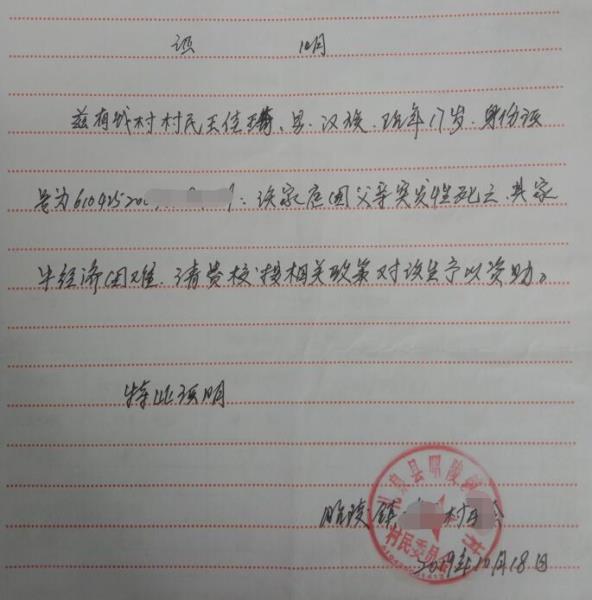 证 明
兹有我村村民王佳瑞、男、汉族、现年17岁、身份证
号为610425200 ，该家庭因父亲突发性死亡、其家
中经济困难、请贵校按相关政策对该生予以资助。
特此证明
昭陵镇 村委会
2019年10月18日
礼泉县昭陵镇
村民委员会